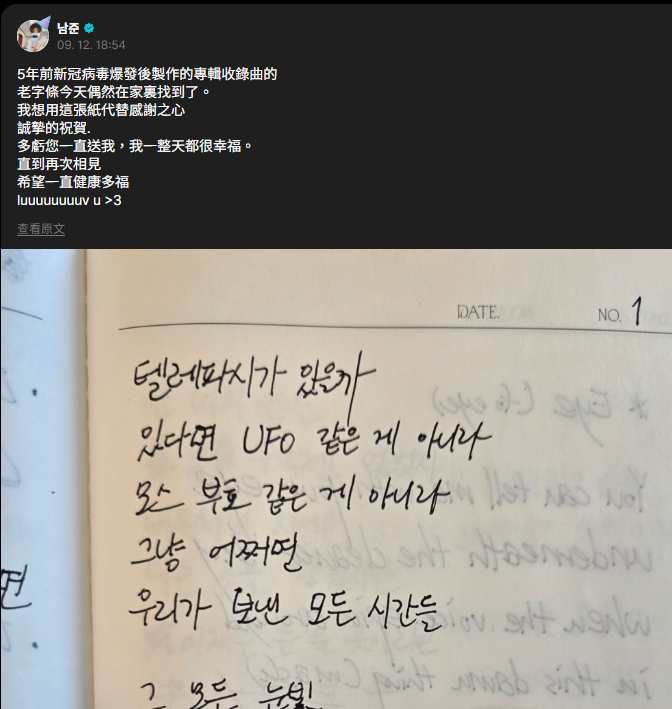 남준
09. 12. 18:54
5年前新冠病毒爆發後製作的專輯收錄曲的
老字條今天偶然在家裏找到了。
我想用這張紙代替感謝之心
誠摯的祝賀.
多虧您一直送我，我一整天都很幸福。
直到再次相見
希望一直健康多福
luuuuuuuuv u >3
查看原文
DATE.
NO. 1
텔레파시가 있을까
있다면 UFO 같은 게 아니라
모스 부호 같은 게 아니라
그냥 어쩌면
우리가 보낸 모든 시간들
그 모든 눈빛
면
* Eye (to eye)
You can tell me
underneath the
when the voice
in this down thing (made)